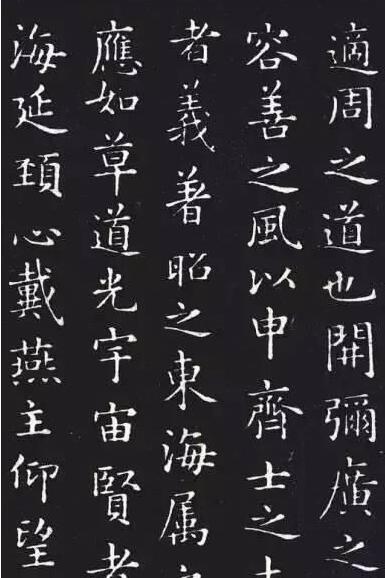 適周之道也開彌廣之
容善之風以申齊士之
者義著昭之東海属
應如草道光宇宙賢者
海延頸心戴燕主仰望